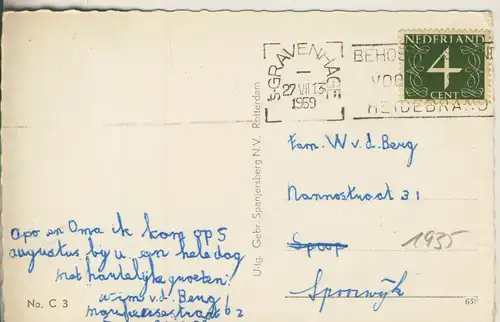 's-GRAVENHAGE
27 VII 13
1959
BEHOE
VOO
HEIDEBRAND
NEDERLAND
4
CENT
Uitg. Gebr. Spanjersberg N.V. Rotterdam
Fam. W v.d. Berg
Nannostraat 31
Spoop
Spoorwijk
1935
opo en Oma ik kom op 5
augustus bij u een hele dag
met hartelijke groeten:
wim v.d. Berg
62
No. C 3
659